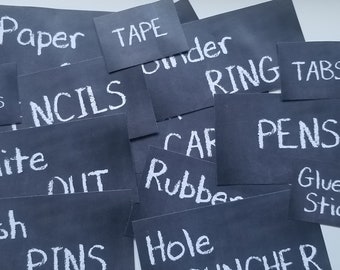 Paper
TAPE
Binder
RING
TABS
PENCILS
CAR
PENS
White
OUT
Rubber
Glue
Stic
PINS
Hole
PUNCHER